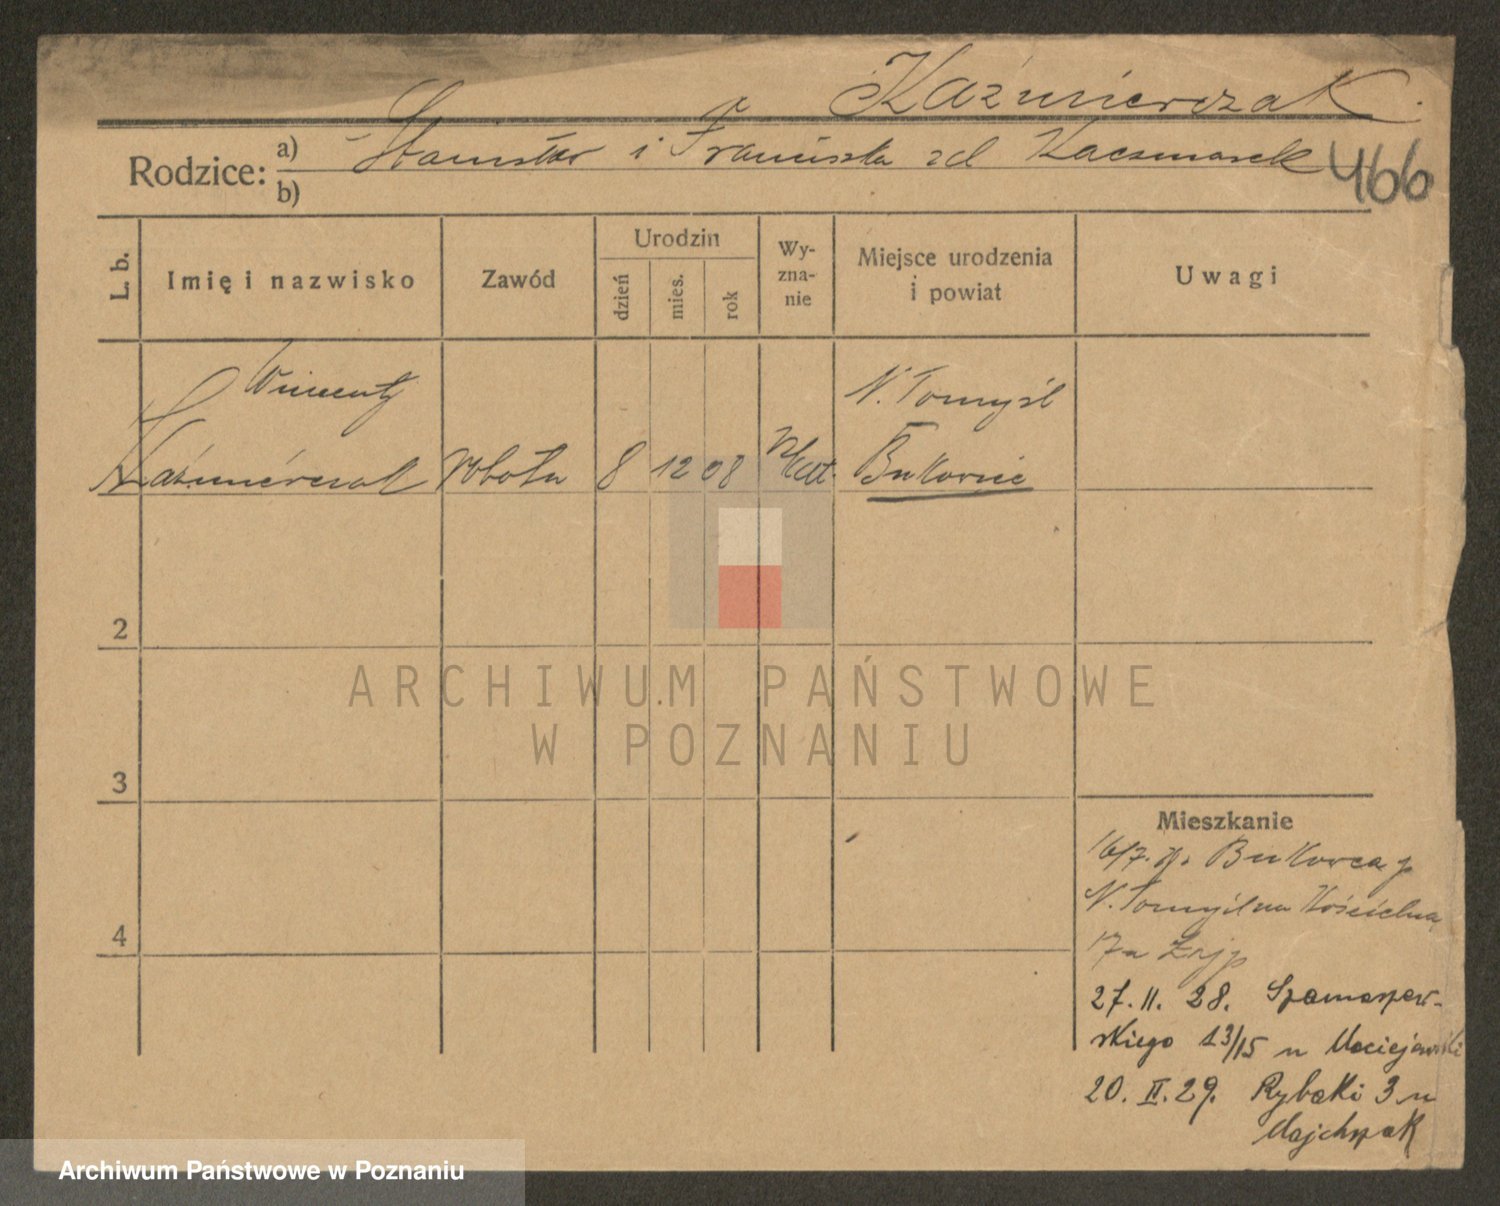 Kaźmierczak
Rodzice: a) Stanisław i Franciszka zd Kaczmarek 466
b)
L. b. Imię i nazwisko Zawód Urodzin dzień mies. rok Wy-zna-nie Miejsce urodzenia i powiat Uwagi
Wincenty N. Tomyśl
Kaźmierczak robotn 8 12 08 rzkat. Bukowiec
2
3
4
ARCHIWUM PAŃSTWOWE
W POZNANIU
Mieszkanie
16/7. Bukowca p
N. Tomyśl na Kościelna
17a
27. 11. 28. Szamarzew-
skiego 13/15 u Maciejewski
20. II. 29. Rybaki 3 u
Majchrzak
Archiwum Państwowe w Poznaniu